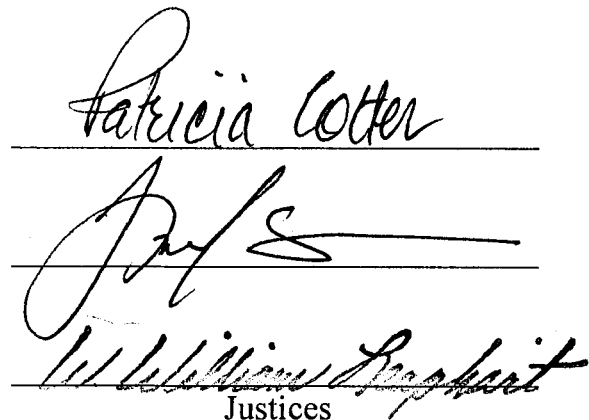 Patricia Cotter
W William Leaphart
Justices